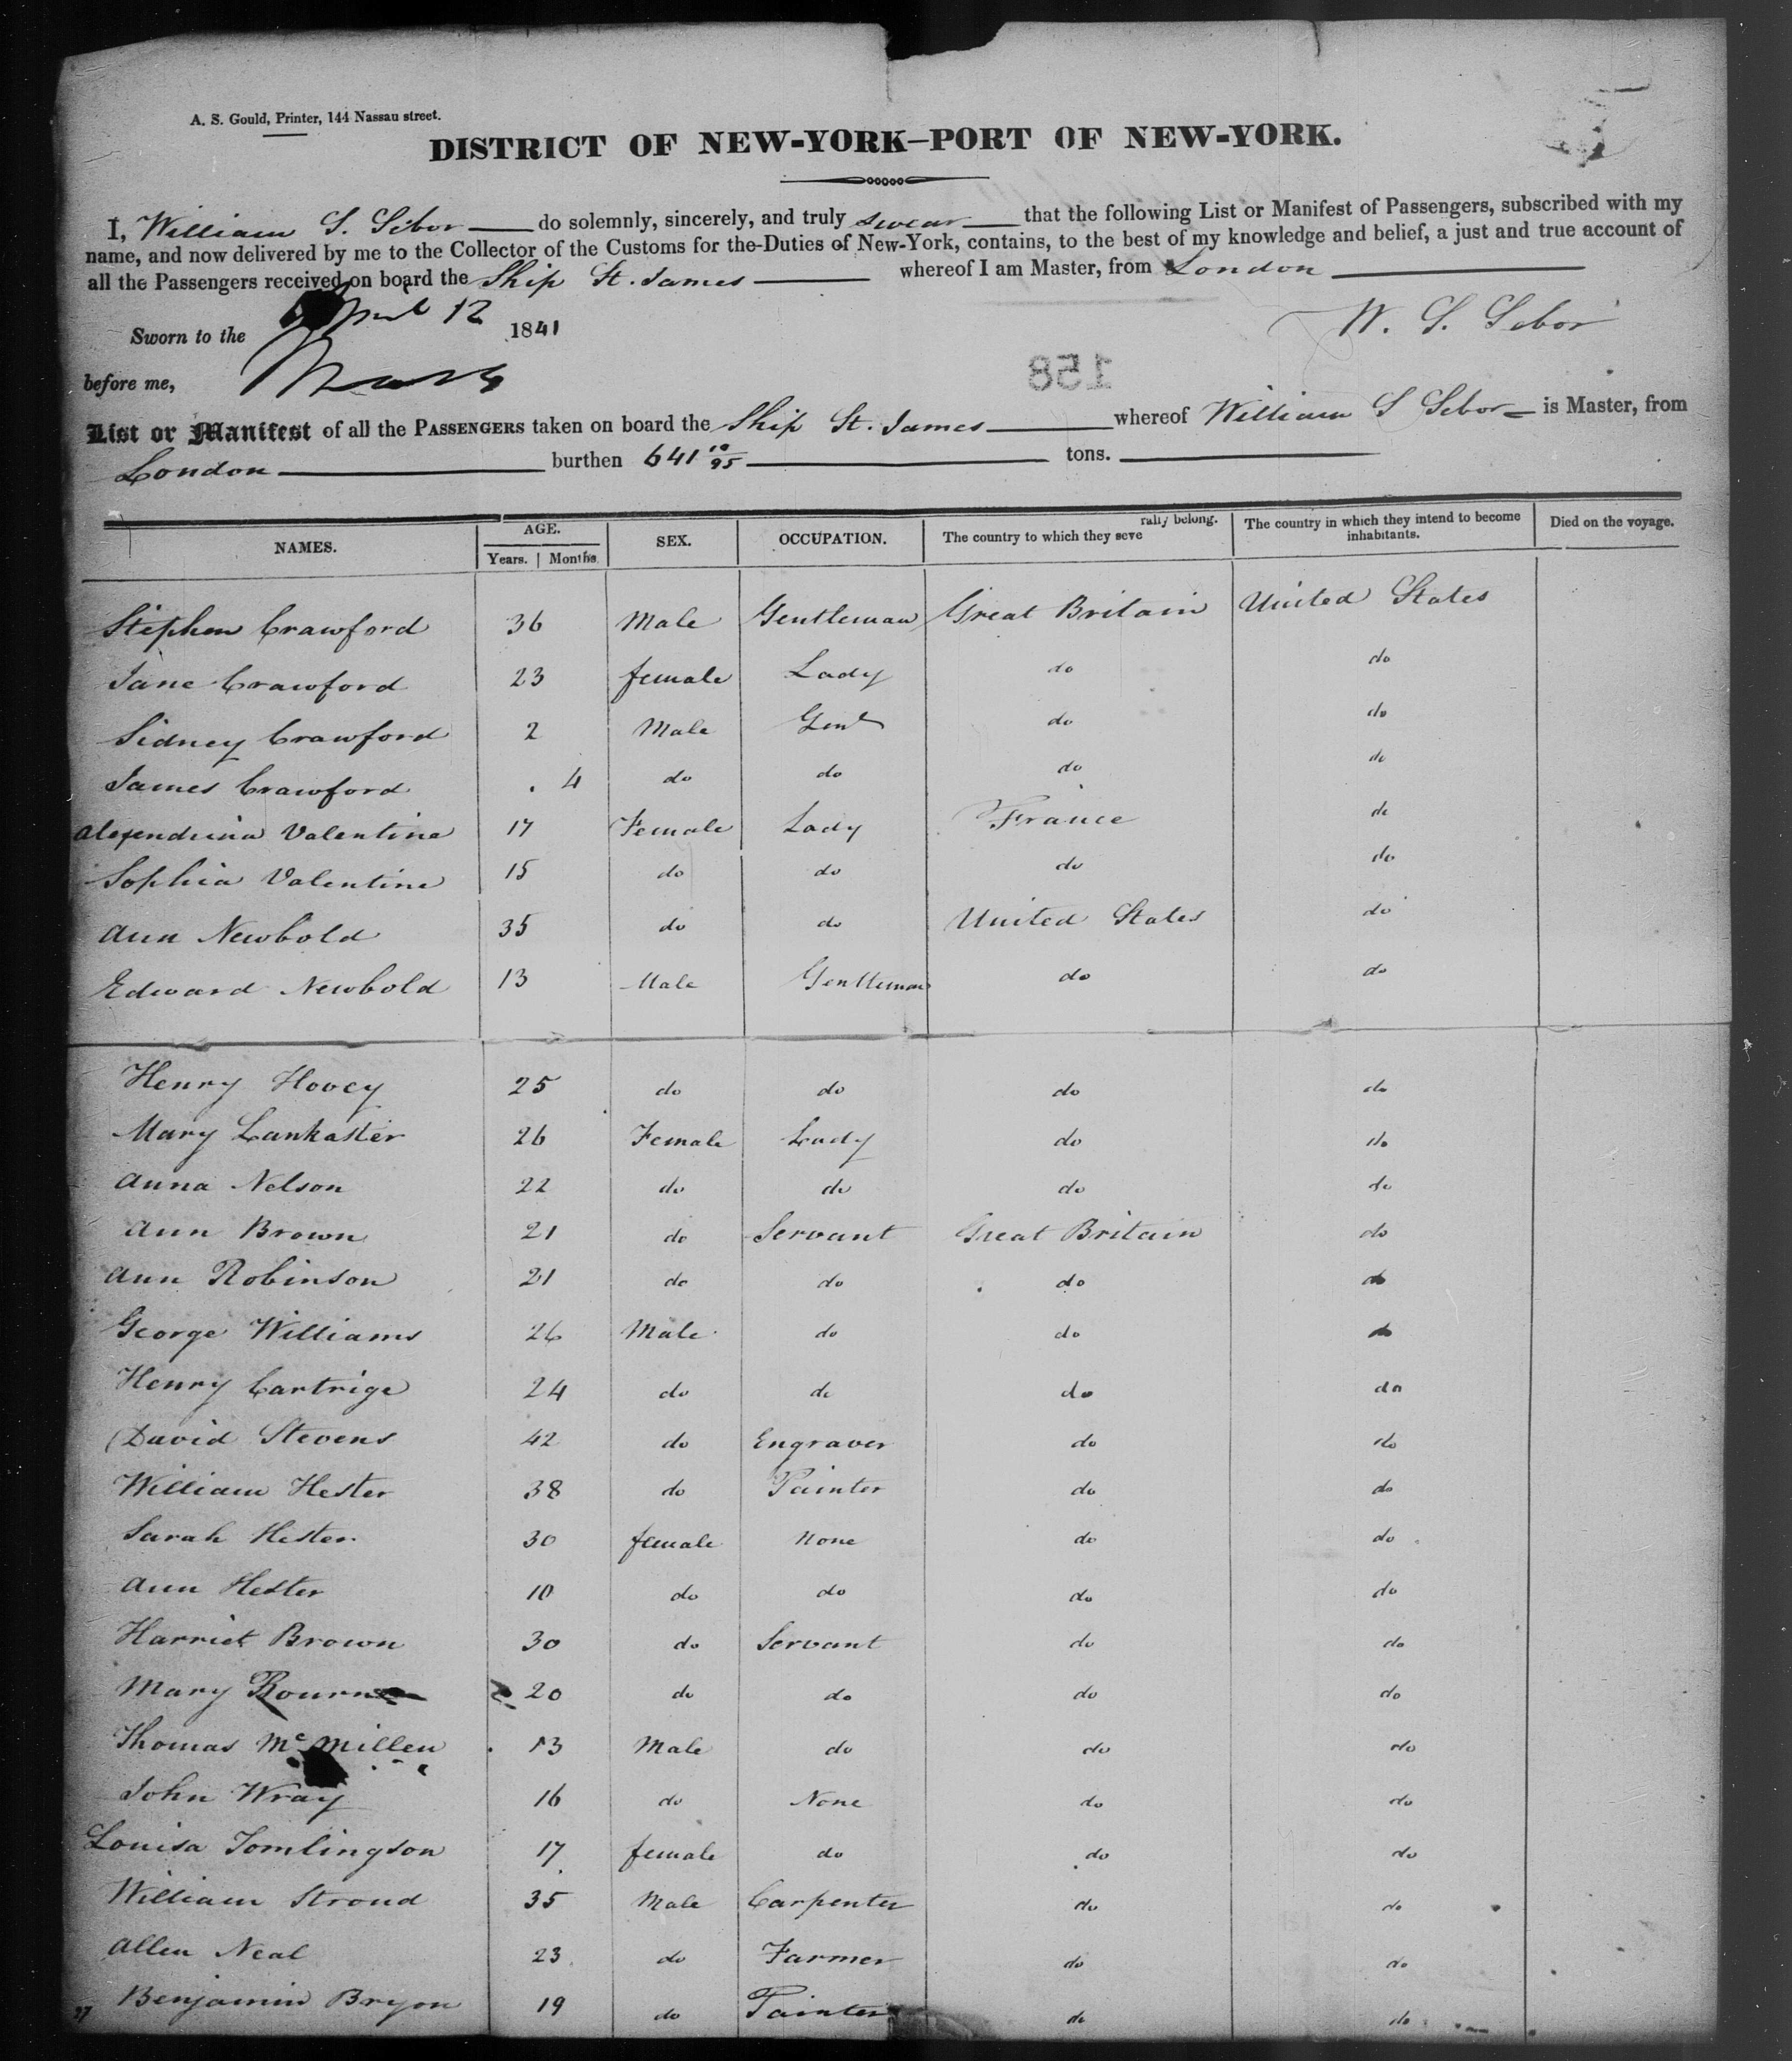 A. S. Gould, Printer, 144 Nassau street.
DISTRICT OF NEW-YORK–PORT OF NEW-YORK.
I, William S. Sebor do solemnly, sincerely, and truly swear that the following List or Manifest of Passengers, subscribed with my
name, and now delivered by me to the Collector of the Customs for the Duties of New-York, contains, to the best of my knowledge and belief, a just and true account of
all the Passengers received on board the Ship St. James whereof I am Master, from London
W. S. Sebor
Sworn to the April 12 1841
before me,
158
List or Manifest of all the PASSENGERS taken on board the Ship St. James whereof William S Sebor is Master, from
London burthen 641 10/95 tons.
NAMES. AGE. Years. Months. SEX. OCCUPATION. The country to which they seve rally belong. The country in which they intend to become inhabitants. Died on the voyage.
Stephen Crawford 36 Male Gentleman Great Britain United States
Jane Crawford 23 female Lady do do
Sidney Crawford 2 Male Gent do do
James Crawford 4 do do do do
Alexendrina Valentine 17 Female Lady France do
Sophia Valentine 15 do do do do
Ann Newbold 35 do do United States do
Edward Newbold 13 Male Gentleman do do
Henry Hovey 25 do do do do
Mary Lankaster 26 Female Lady do do
Anna Nelson 22 do do do do
Ann Brown 21 do Servant Great Britain do
Ann Robinson 21 do do do do
George Williams 26 Male do do do
Henry Cartrige 24 do do do do
David Stevens 42 do Engraver do do
William Hester 38 do Painter do do
Sarah Hester 30 female None do do
Ann Hester 10 do do do do
Harriet Brown 30 do Servant do do
Mary Bourn 20 do do do do
Thomas McMillen 13 Male do do do
John Wray 16 do None do do
Louisa Tomlingson 17 female do do do
William Stroud 35 Male Carpenter do do
Allen Neal 23 do Farmer do do
27 Benjamin Bryon 19 do Painter do do